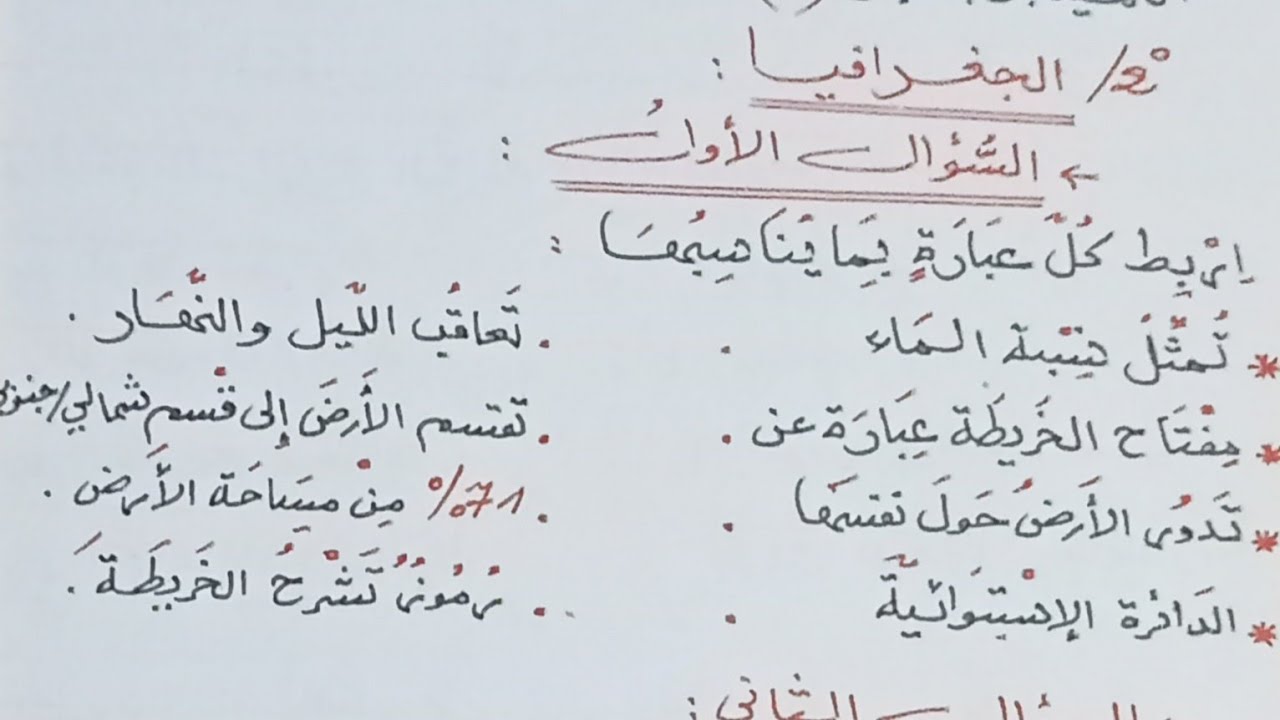 2°/ الجغرافيا :
← السُّؤال الأولُ :
اِرْبِط كُلَّ عِبَارَةٍ بِمَا يُنَاسِبُهَا :
* تُمَثِّلُ نِسْبة المَاء . . تَعاقُب اللَّيل والنَّهَار .
* مِفْتَاح الخَرِيطَة عِبَارَة عن . . تقسم الأَرضَ إِلى قسْم شمالي/جنوبي
* تَدُورُ الأَرضُ حَولَ نفسهَا . . 71% مِنْ مِسَاحَة الأَرض .
* الدَائرة الإِسْتِوَائيَّة . . رُمُوزٌ تَشْرَحُ الخَرِيطَةَ .
السؤال الثاني :